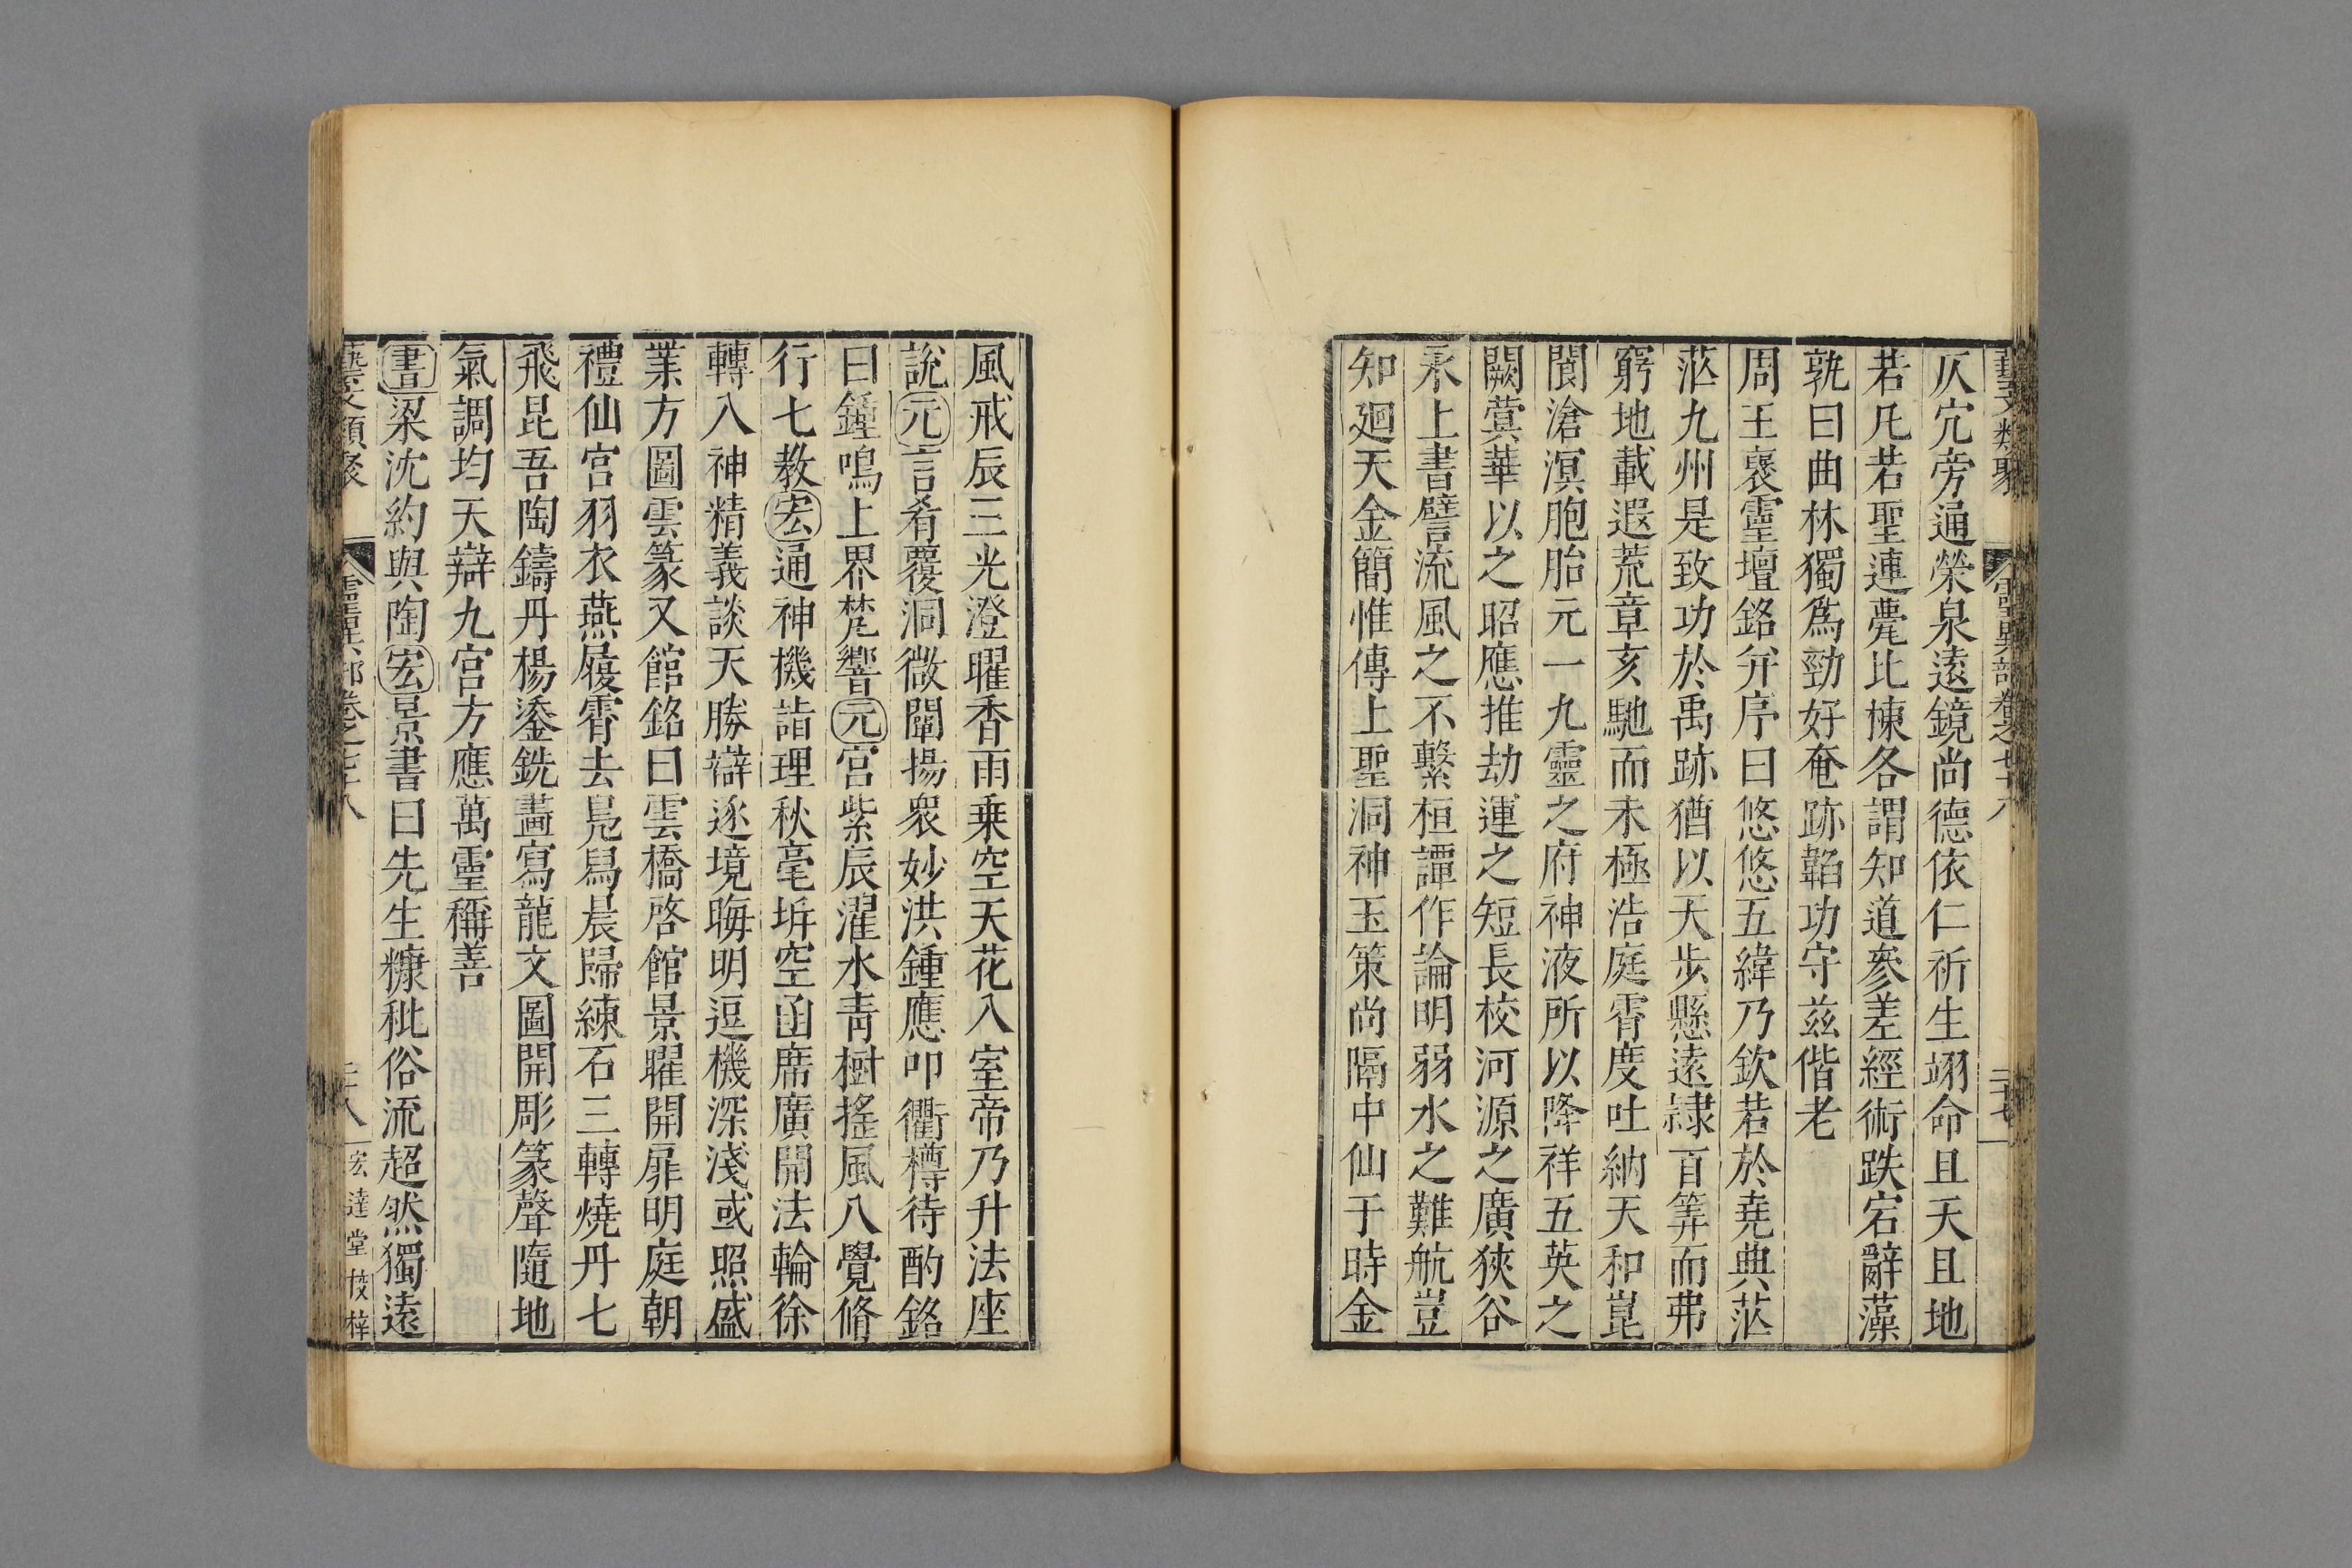 藝文類聚 靈異部卷之七十八 二十七
仄宂旁通榮泉遠鏡尚德依仁祈生翊命且天且地
若凡若聖連甍比棟各謂知道參差經術跌宕辭藻
孰曰曲林獨爲勁好奄跡韜功守茲偕老
周王襃靈壇銘并序曰悠悠五緯乃欽若於堯典茫
茫九州是致功於禹跡猶以天步懸遠隷首筭而弗
窮地載遐荒章亥馳而未極浩庭霄度吐納天和崑
閬滄溟胞胎元一九靈之府神液所以降祥五英之
闕蓂華以之昭應推劫運之短長校河源之廣狹谷
永上書譬流風之不繫桓譚作論明弱水之難航豈
知廻天金簡惟傳上聖洞神玉策尚隔中仙于時金
風戒辰三光澄曜香雨乗空天花入室帝乃升法座
說元言肴覆洞微闡揚衆妙洪鍾應叩衢樽待酌銘
曰鍾鳴上界梵響元宮紫辰濯水青樹搖風八覺脩
行七教宏通神機詣理秋毫坼空函席廣開法輪徐
轉入神精義談天勝辯逐境晦明逗機深淺或照盛
業方圖雲篆又館銘曰雲橋啓館景曜開扉明庭朝
禮仙宮羽衣燕履霄去鳧舄晨歸練石三轉燒丹七
飛昆吾陶鑄丹楊鎏銑畵寫龍文圖開彫篆聲隨地
氣調均天辯九宮方應萬靈稱善
書梁沈約與陶宏景書曰先生糠秕俗流超然獨遠
藝文類聚 靈異部卷之七十八 二十八 宏達堂校梓